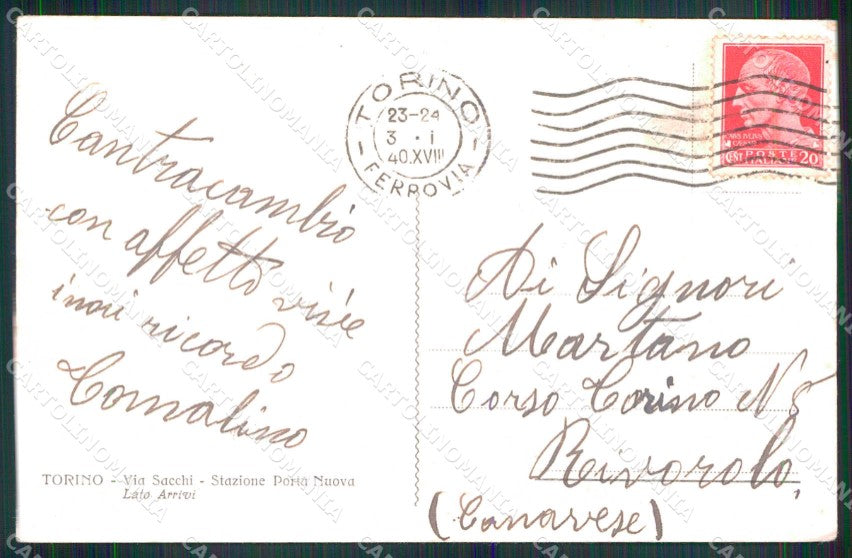 Contracambio
con affetto
ricordo
TORINO - Via Sacchi - Stazione Porta Nuova
Lato Arrivi
TORINO
23-24
3 . I
40.XVIII
FERROVIA
POSTE
CENT ITALIANE 20
Ai Signori
Martano
Corso Torino N 8
Rivorolo,
(Canavese)
CARTOLINOMANIA